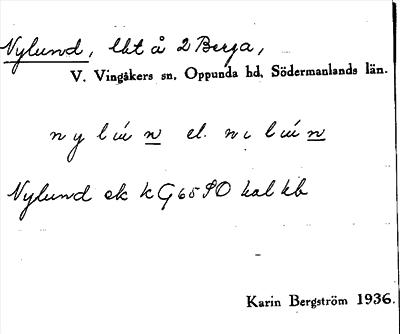 Nylund, lht å 2 Berga,
V. Vingåkers sn, Oppunda hd, Södermanlands län.
n y l ú n el. n i l ú n
Nylund ek k G 65 SO kal kb
Karin Bergström 1936.